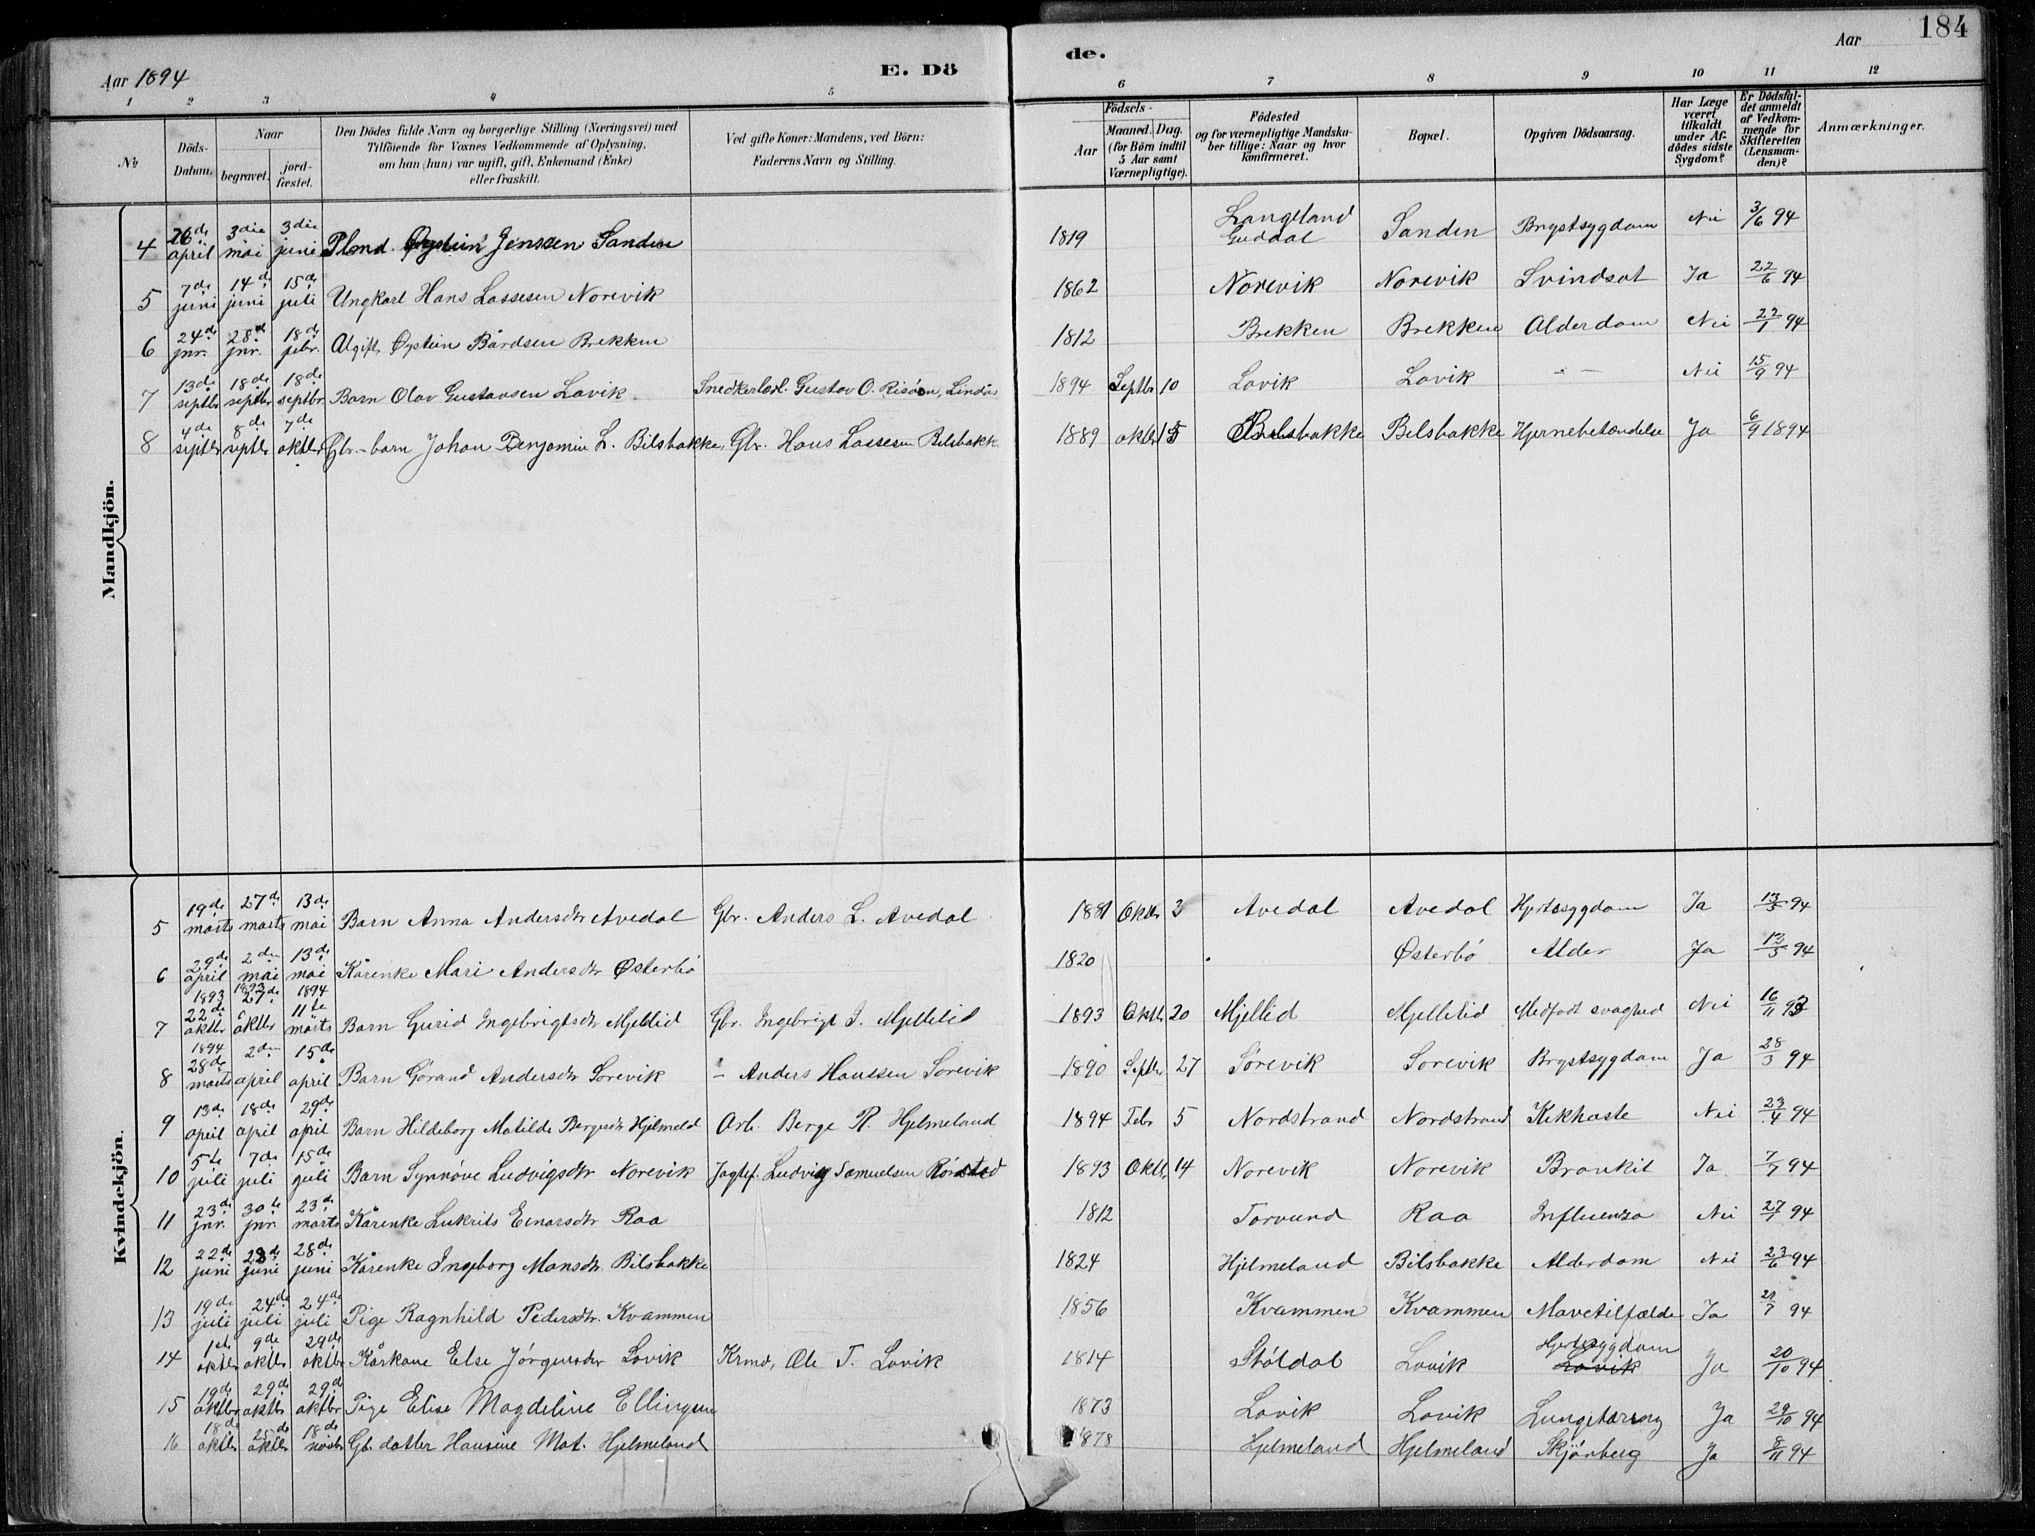 184
Aar 1894
E. Dö
de.
Aar
1 2 3 4 5 6 7 8 9 10 11 12
No
Döds-Datum.
Naar
begravet.
jord-fæstet.
Den Dödes fulde Navn og borgerlige Stilling (Næringsvei) med
Tilföiende for Voxnes Vedkommende af Oplysning,
om han (hun) var ugift, gift, Enkemand (Enke)
eller fraskilt.
Ved gifte Koner: Mandens, ved Börn:
Faderens Navn og Stilling.
Födsels-
Aar
Maaned. Dag.
(for Börn indtil
5 Aar samt
Værnepligtige).
Födested
og for værnepligtige Mandska-
ber tillige: Naar og hvor
konfirmeret.
Bopæl.
Opgiven Dödsaarsag.
Har Læge
været
tilkaldt
under Af-
dödes sidste
Sygdom?
Er Dödsfal-
det anmeldt
af Vedkom-
mende for
Skifteretten
(Lensman-
den)?
Anmærkninger.
Mandkjön.
4 26de april 3die mai 3die juni Plmd. Øystein Jenssen Sanden 1819 Langeland Guddal Sanden Brystsygdom Nei 3/6 94
5 7de juni 14de juni 15de juli Ungkarl Hans Lassesen Norevik 1862 Norevik Norevik Svindsot Ja 22/6 94
6 24de jnr. 28de jnr. 18de febr. Afgift. Øystein Bårdsen Brekken 1812 Brekken Brekken Alderdom Nei 22/1 94
7 13de septbr 18de septbr 18de septbr. Barn Olav Gustavsen Lavik Snedkerlærl. Gustav O. Risöen, Lindås 1894 Septbr 10 Lavik Lavik - - Nei 15/9 94
8 4de septbr 8de septbr 7de oktbr Gbr.-barn Johan Benjamin L. Bilsbakke, Gbr. Hans Lassesen Bilsbakk 1889 oktbr 15 Bilsbakke Bilsbakke Hjernebetændelse Ja 6/9 1894
Kvindekjön.
5 19de marts 27de marts 13de mai Barn Anna Andersdtr Avedal Gbr. Anders L. Avedal 1881 Oktbr 3 Avedal Avedal Hjertesygdom Ja 13/5 94
6 29de april 2den mai 13de mai Kårenke Mari Andersdtr Østerbö 1820 Østerbö Alder Ja 13/5 94
7 1893 22de oktbr 1893 27de oktbr 1894 11te marts Barn Gurid Ingebrigtsdtr Mjellid Gbr. Ingebrigt I. Mjellelid 1893 Oktbr 20 Mjellid Mjellelid Medfødt svaghed Nei 16/11 93
8 1894 28de marts 2den april 15de april Barn Görand Andersdtr Sörevik - Anders Hanssen Sörevik 1890 Septbr 27 Sörevik Sörevik Brystsygdom Ja 28/3 94
9 13de april 18de april 29de april Barn Hildeborg Matilde Bergesdtr Hjelmeld Arb. Berge R. Hjelmeland 1894 Febr 5 Nordstrand Nordstrand Kikhoste Nei 23/4 94
10 5te juli 7de juli 15de juli Barn Synnöve Ludvigsdtr Norevik Jagtef. Ludvig Samuelsen Rörstad 1893 Oktbr 14 Norevik Norevik Bronkit Ja 7/7 94
11 23de jnr. 30te jnr. 23de marts Kårenke Lukrits Einarsdtr Raa 1812 Torvund Raa Influenza Nei 27/1 94
12 22de juni 28de juni 28de juni Kårenke Ingeborg Monsdtr. Bilsbakke 1824 Hjelmeland Bilsbakke Alderdom Nei 23/6 94
13 19de juli 24de juli 24de juli Pige Ragnhild Pedersdtr. Kvammen 1856 Kvammen Kvammen Mavetilfælde Ja 21/7 94
14 1ste oktbr 9de oktbr 29de oktbr Kårkone Else Jörgensdtr Lavik Krmd, Ole T. Lavik 1814 Stöldal Lavik Hjertesygdom Lavik Ja 20/10 94
15 19de oktbr 29de oktbr 29de oktbr Pige Elise Magdeline Ellingsen 1873 Lavik Lavik Lungetæring Ja 29/10 94
16 18de oktbr 25de oktbr 18de novbr Gb.datter Hansine Mat. Hjelmeland 1878 Hjelmeland Hjelmeland Skjörbug Ja 8/11 94